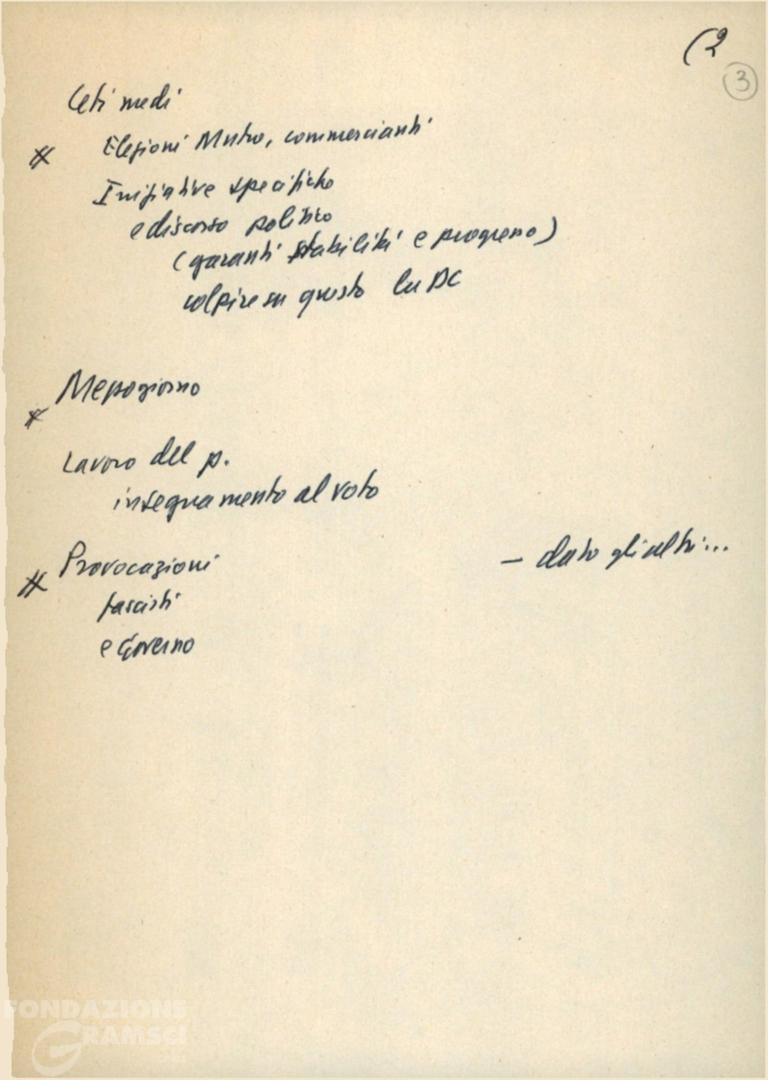 (2
3
Ceti medi
Elezioni Mutue, commercianti
Iniziative specifiche
e discorso politico
(garanti stabilità e progresso)
colpire su questo la DC
Mezzogiorno
Lavoro del p.
insegnamento al voto
Provocazioni
- dato gli altri...
fascisti
e Governo
FONDAZIONE
GRAMSCI